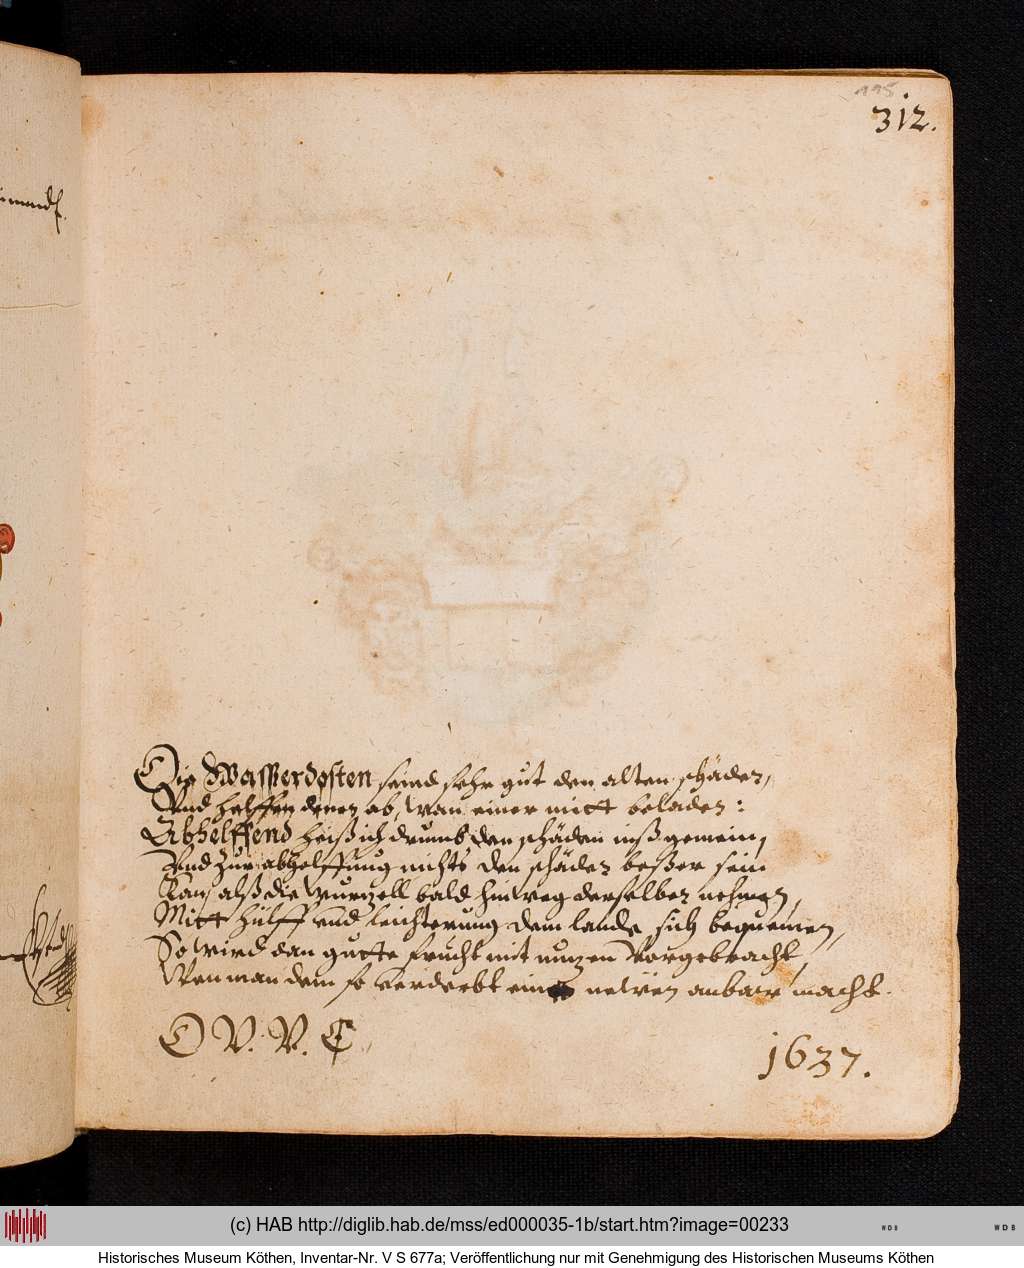 195
312.
Die Wasserdosten seind sehr gut den alten schäden,
Und helffen denen ab, wan einer mitt beladen:
Abhelffend heiß ich drumb den schäden inß gemein,
Und zur abhelffung nichts den schäden beßer sein
Kan, alß die wurzell bald hinweg derselben nehmen,
Mitt hülff und leichterung dem lande sich bequemen,
So wird dan gutte frucht mit nuzen Vorgebracht,
Wen man dem so verderbt ein newen anbaw macht.
O V. V. C
1637.
(c) HAB http://diglib.hab.de/mss/ed000035-1b/start.htm?image=00233
WDB
WDB
Historisches Museum Köthen, Inventar-Nr. V S 677a; Veröffentlichung nur mit Genehmigung des Historischen Museums Köthen